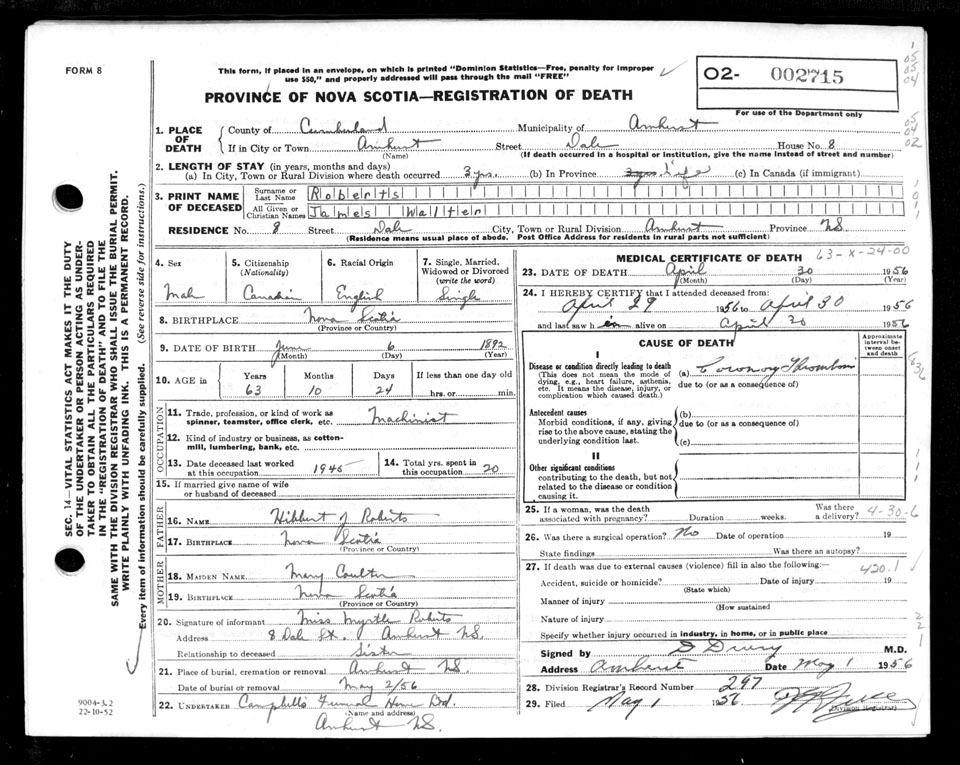 FORM 8
This form, if placed in an envelope, on which is printed "Dominion Statistics—Free, penalty for improper
use $50," and properly addressed will pass through the mail "FREE"
O2- 002715
For use of the Department only
PROVINCE OF NOVA SCOTIA—REGISTRATION OF DEATH
1. PLACE OF DEATH
County of Cumberland Municipality of Amherst
If in City or Town Amherst Street Dale House No. 8
(Name) (If death occurred in a hospital or institution, give the name instead of street and number)
2. LENGTH OF STAY (in years, months and days)
(a) In City, Town or Rural Division where death occurred 3 yrs. (b) In Province life (c) In Canada (if immigrant)
3. PRINT NAME OF DECEASED
Surname or Last Name Roberts
All Given or Christian Names James Walter
RESIDENCE No. 8 Street Dale City, Town or Rural Division Amherst Province NS
(Residence means usual place of abode. Post Office Address for residents in rural parts not sufficient)
4. Sex
Male
5. Citizenship (Nationality)
Canadian
6. Racial Origin
English
7. Single, Married, Widowed or Divorced (write the word)
Single
8. BIRTHPLACE Nova Scotia
(Province or Country)
9. DATE OF BIRTH June 6 1892
(Month) (Day) (Year)
10. AGE in Years Months Days If less than one day old
63 10 24 hrs. or min.
OCCUPATION
11. Trade, profession, or kind of work as
spinner, teamster, office clerk, etc. Machinist
12. Kind of industry or business, as cotton-
mill, lumbering, bank, etc.
13. Date deceased last worked
at this occupation 1945
14. Total yrs. spent in
this occupation 20
15. If married give name of wife
or husband of deceased
FATHER
16. NAME Hibbert J Roberts
17. BIRTHPLACE Nova Scotia
(Province or Country)
MOTHER
18. MAIDEN NAME Mary Coulter
19. BIRTHPLACE Nova Scotia
(Province or Country)
20. Signature of informant Miss Myrtle Roberts
Address 8 Dale St. Amherst NS.
Relationship to deceased Sister
21. Place of burial, cremation or removal Amherst NS.
Date of burial or removal May 2/56
22. UNDERTAKER Campbells Funeral Home Ltd.
(Name and address)
Amherst NS.
MEDICAL CERTIFICATE OF DEATH 63-X-24-00
23. DATE OF DEATH April 30 1956
(Month) (Day) (Year)
24. I HEREBY CERTIFY that I attended deceased from:
April 29 1956 to April 30 1956
and last saw him alive on April 30 1956
CAUSE OF DEATH
Approximate interval between onset and death
I
Disease or condition directly leading to death
(This does not mean the mode of
dying, e.g., heart failure, asthenia,
etc. It means the disease, injury, or
complication which caused death.)
(a) Coronary Thrombosis
due to (or as a consequence of)
Antecedent causes
Morbid conditions, if any, giving
rise to the above cause, stating the
underlying condition last.
(b)
due to (or as a consequence of)
(c)
II
Other significant conditions
contributing to the death, but not
related to the disease or condition
causing it.
25. If a woman, was the death
associated with pregnancy? Duration weeks. Was there a delivery? 4-30-6
26. Was there a surgical operation? No Date of operation 19
State findings Was there an autopsy?
27. If death was due to external causes (violence) fill in also the following:— 420.1
Accident, suicide or homicide? Date of injury 19
(State which)
Manner of injury
(How sustained
Nature of injury
Specify whether injury occurred in industry, in home, or in public place
Signed by D Drury M.D.
Address Amherst Date May 1 1956
28. Division Registrar's Record Number 297
29. Filed May 1 1956
(Division Registrar)
SEC. 14—VITAL STATISTICS ACT MAKES IT THE DUTY
OF THE UNDERTAKER OR PERSON ACTING AS UNDER-
TAKER TO OBTAIN ALL THE PARTICULARS REQUIRED
IN THE "REGISTRATION OF DEATH" AND TO FILE THE
SAME WITH THE DIVISION REGISTRAR WHO SHALL ISSUE THE BURIAL PERMIT.
WRITE PLAINLY WITH UNFADING INK. THIS IS A PERMANENT RECORD.
Every item of information should be carefully supplied. (See reverse side for instructions.)
9004-3.2
22-10-52